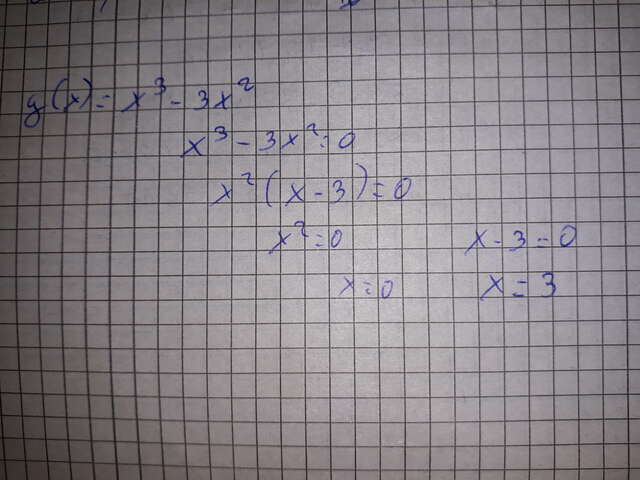 y(x) = x³ - 3x²
x³ - 3x² = 0
x² (x - 3) = 0
x² = 0 x - 3 = 0
x = 0 x = 3